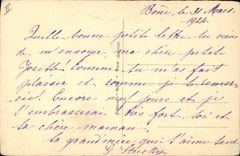 Bône, le 31 Mars
1924.
Quelle bonne petite lettre tu viens
de m'envoyer ma chère petite
Josette! Comme tu m'as fait
plaisir et comme je te remer-
cie. Encore jours et je
t'embrasserai très fort, toi et
ta chère maman.
ta grand'mère qui t'aime tant